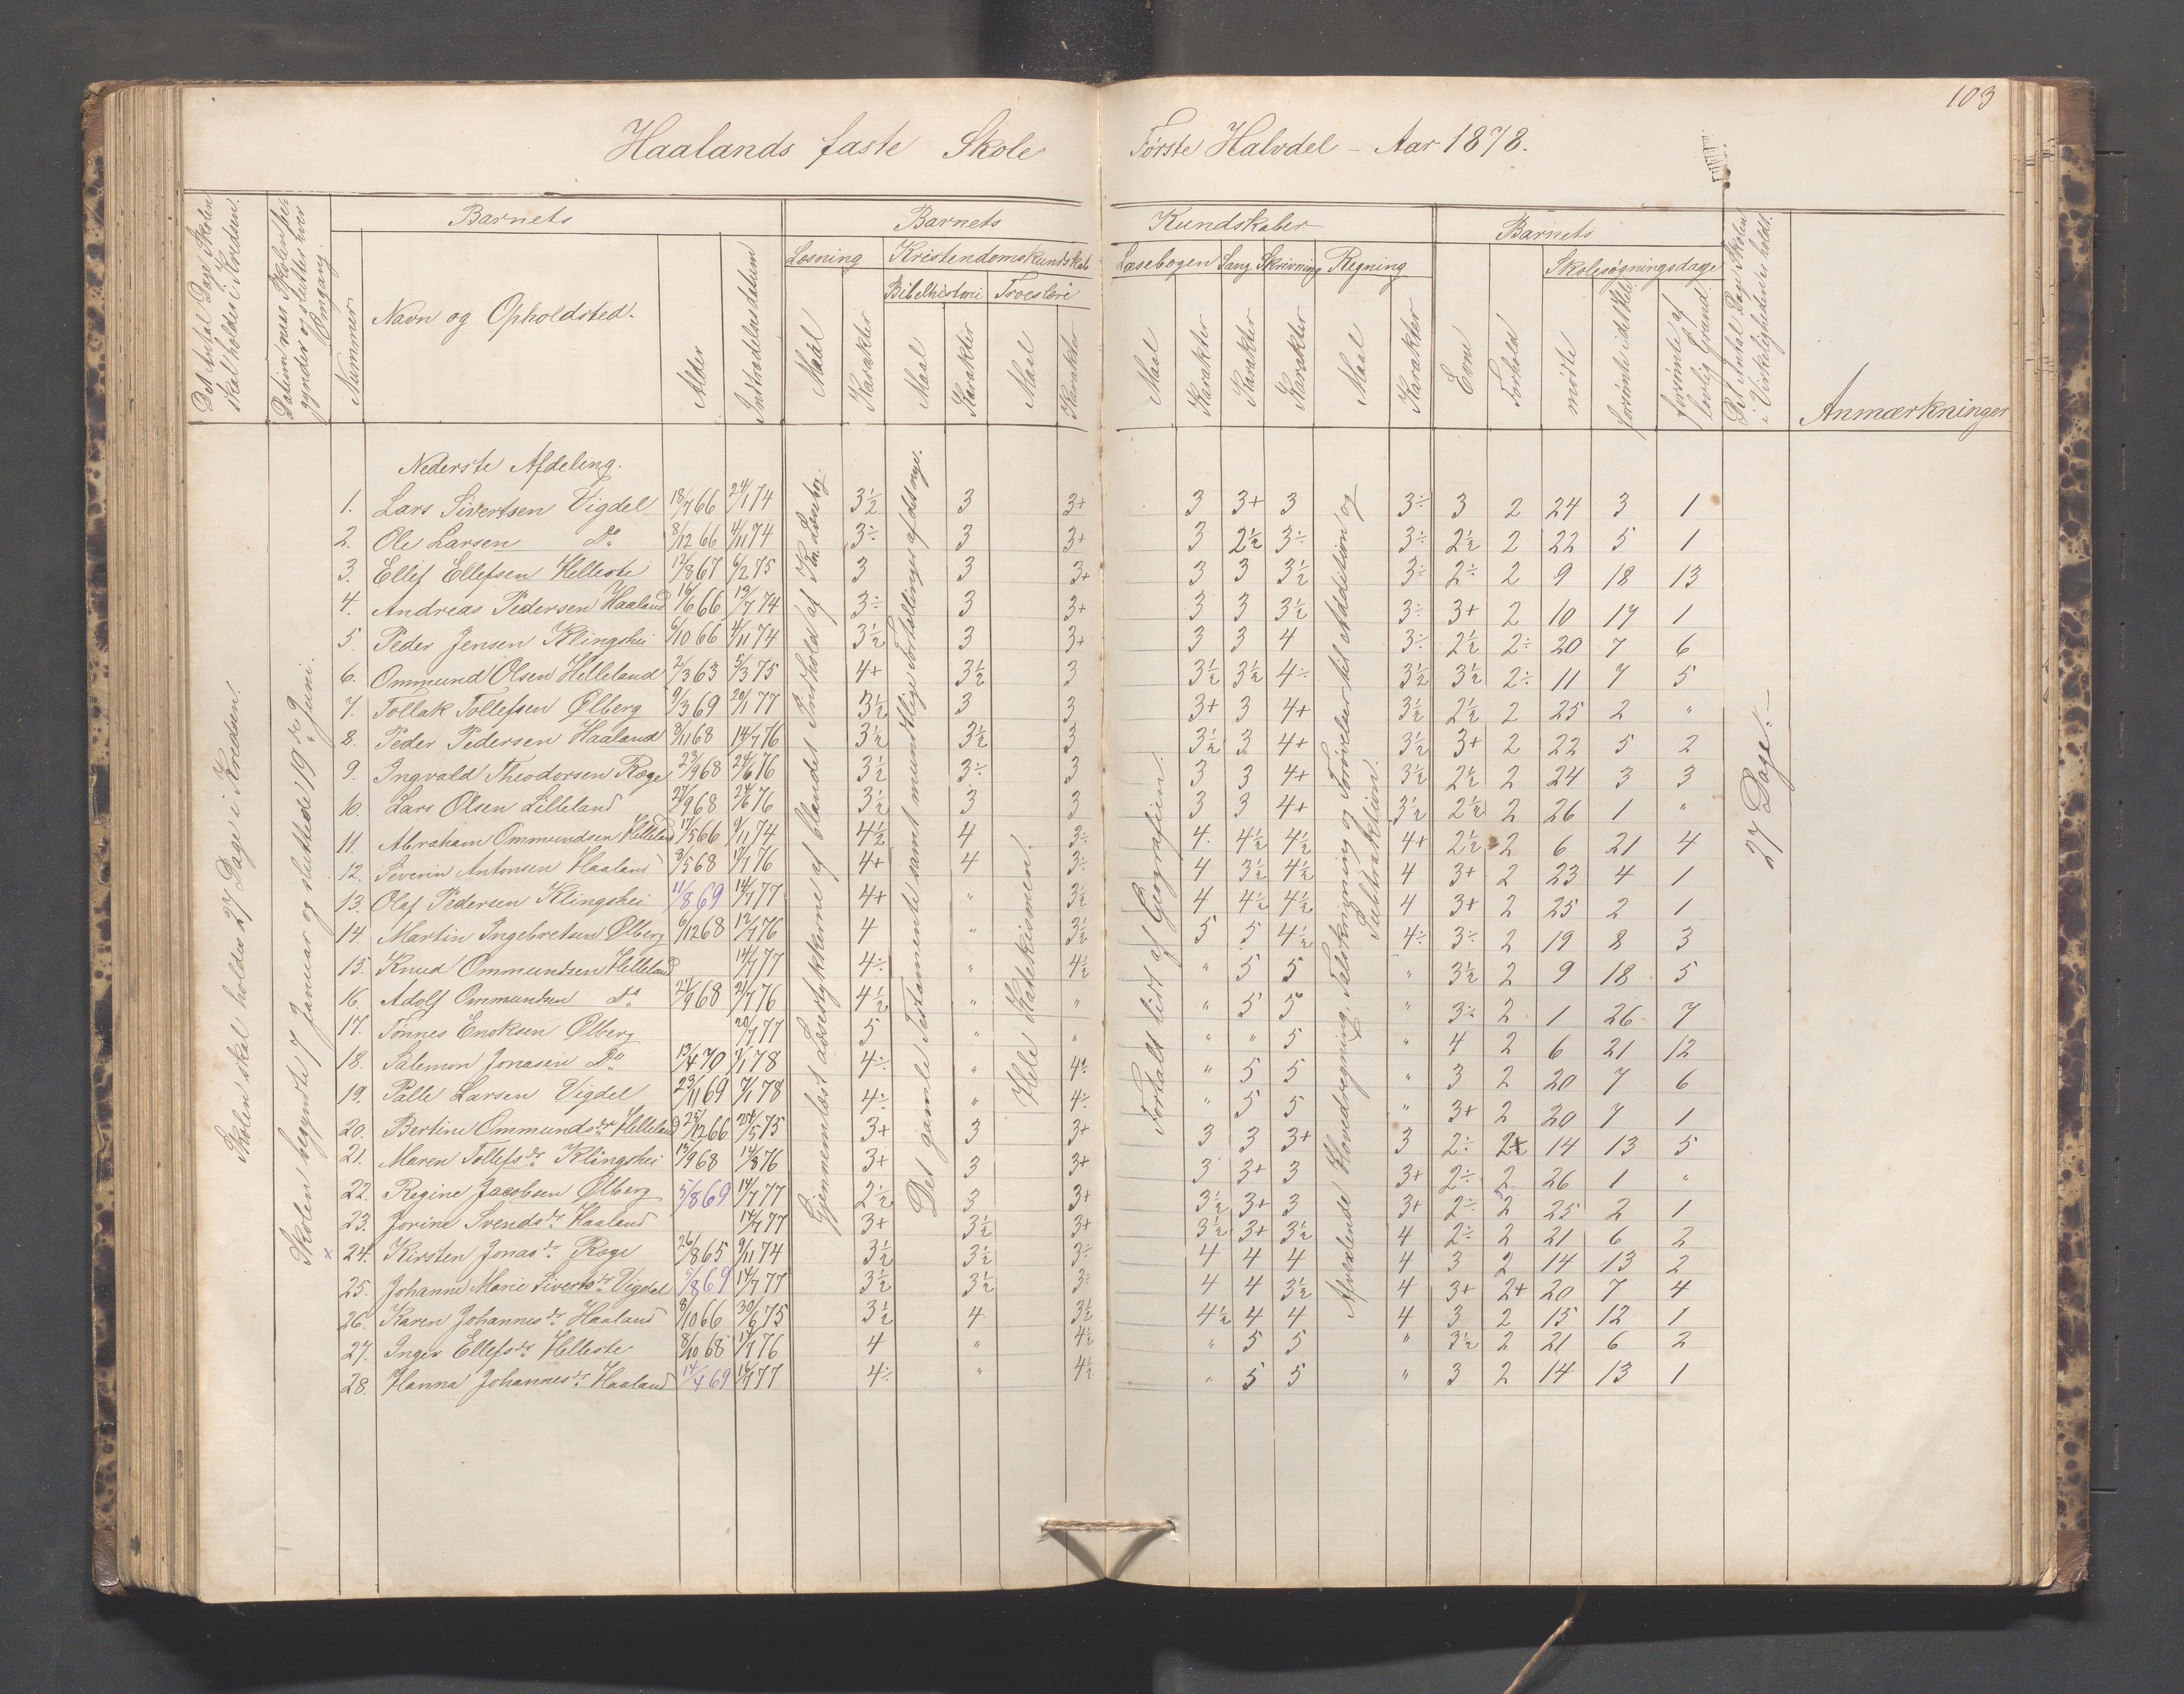 103
Haalands faste Skole Første Halvdel - Aar 1878.
Det Antal Dage Skolen skal holdes i Kredsen.
Datum naar Skolen begynder og slutter hver Omgang.
Barnets Barnets Kundskaber Barnets
Nummer Navn og Opholdsted. Alder Indtrædelsesdatum
Læsning Kristendomskundskab Læsebogen Sang Skrivning Regning Skolesøgningsdage
Bibelhistorie Troeslære
Maal Karakter Maal Karakter Maal Karakter Maal Karakter Karakter Karakter Maal Karakter Evne Forhold mødte forsømte i det Hele forsømte af lovlig Grund
Det Antal Dage Skolen i Virkeligheden er holdt.
Anmærkninger
Skolen skal holdes 27 Dage i Kredsen.
Skolen begyndte 7 Januar og sluttede 19de Juni.
Gjennemlæst Læsestykkerne af blandet Indhold af Jen. Læsebog.
Det gamle Testamente samt mundtlige Fortællinger af det nye.
Hele Katekismen.
Fortalt lidt af Geografien.
Afvexlende Hovedregning, Talskrivning og Forøvelser til Addition og Subtraktion.
27 Dage.-
Nederste Afdeling.
1. Lars Sivertsen Vigdel 18/7 66 24/1 74 3½ 3 3+ 3 3+ 3 3÷ 3 2 24 3 1
2. Ole Larsen Do 8/12 66 4/11 74 3÷ 3 3+ 3 2½ 3÷ 3÷ 2½ 2 22 5 1
3. Ellef Ellefsen Helleste 12/8 67 6/2 75 3 3 3+ 3 3 3½ 3÷ 2÷ 2 9 18 13
4. Andreas Pedersen Haaland 16/6 66 13/7 74 3÷ 3 3+ 3 3 3½ 3÷ 3+ 2 10 17 1
5. Peder Jensen Klingshei 6/10 66 4/11 74 3½ 3 3+ 3 3 4 3÷ 2½ 2÷ 20 7 6
6. Ommund Olsen Helleland 2/3 63 5/3 75 4+ 3½ 3 3½ 3½ 4÷ 3½ 3½ 2÷ 11 7 5
7. Tollak Tollefsen Ølberg 9/3 69 20/1 77 3½ 3 3 3+ 3 4+ 3½ 2½ 2 25 2 "
8. Peder Pedersen Haaland 3/11 68 14/7 76 3½ 3½ 3 3½ 3 4+ 3½ 3+ 2 22 5 2
9. Ingvald Theodorsen Ræge 23/9 68 24/6 76 3½ 3÷ 3 3 3 4+ 3½ 2½ 2 24 3 3
10. Lars Olsen Lilleland 27/9 68 24/6 76 3½ 3 3 3 3 4+ 3½ 2½ 2 26 1 "
11. Abraham Ommundsen Helleland 17/5 66 9/11 74 4½ 4 3÷ 4. 4½ 4½ 4+ 2½ 2 6 21 4
12. Severin Antonsen Haaland 3/5 68 17/7 76 4+ 4 3÷ 4 3½ 4½ 4 3+ 2 23 4 1
13. Olaf Pedersen Klingshei 11/8 69 14/7 77 4+ " 3½ 4 4½ 4½ 4 3+ 2 25 2 1
14. Martin Ingebretsen Ølberg 6/12 68 12/7 76 4 " 3½ 5 5 4½ 4÷ 3÷ 2 19 8 3
15. Knud Ommundsen Helleland 14/7 77 4÷ " 4½ " 5 5 " 3½ 2 9 18 5
16. Adolf Ommundsen do 21/9 68 21/7 76 4½ " " " 5 5 " 3÷ 2 1 26 7
17. Tønnes Enoksen Ølberg 20/7 77 5 " " " " 5 " 4 2 6 21 12
18. Salemon Jonasen Do 13/4 70 7/1 78 4÷ " 4÷ " 5 5 " 3 2 20 7 6
19. Palle Larsen Vigdel 29/11 69 7/1 78 4÷ " 4÷ " 5 5 " 3+ 2 20 7 1
20. Bertine Ommundsdr Helleland 25/12 66 24/5 75 3+ 3 3+ 3 3 3+ 3 2÷ 2+ 14 13 5
21. Maren Tollefsdr Klingshei 13/9 68 14/8 76 3+ 3 3+ 3 3+ 3 3+ 2÷ 2 26 1 "
22. Regine Jacobsen Ølberg 5/8 69 14/7 77 2½ 3 3+ 3½ 3+ 3 3+ 2÷ 2 25 2 1
23. Jorine Svendsdr Haaland 14/7 77 3+ 3½ 3+ 3½ 3+ 3½ 4 2÷ 2 21 6 2
x 24. Kirsten Jonasdr Ræge 26/8 65 9/11 74 3½ 3½ 3÷ 4 4 4 4 3 2 14 13 2
25. Johanne Marie Sivertsdr Vigdel 5/8 69 14/7 77 3½ 3½ 3÷ 4 4 3½ 4 3+ 2+ 20 7 4
26. Karen Johannesdr Haaland 8/10 66 30/6 75 3½ 4 3½ 4½ 4 4 4 3 2 15 12 1
27. Inger Ellefsdr Helleste 8/10 68 17/7 76 4 " 4½ " 5 5 " 3½ 2 21 6 2
28. Hanna Johannesdr Haaland 14/4 69 16/7 77 4÷ " 4½ " 5 5 " 3 2 14 13 1